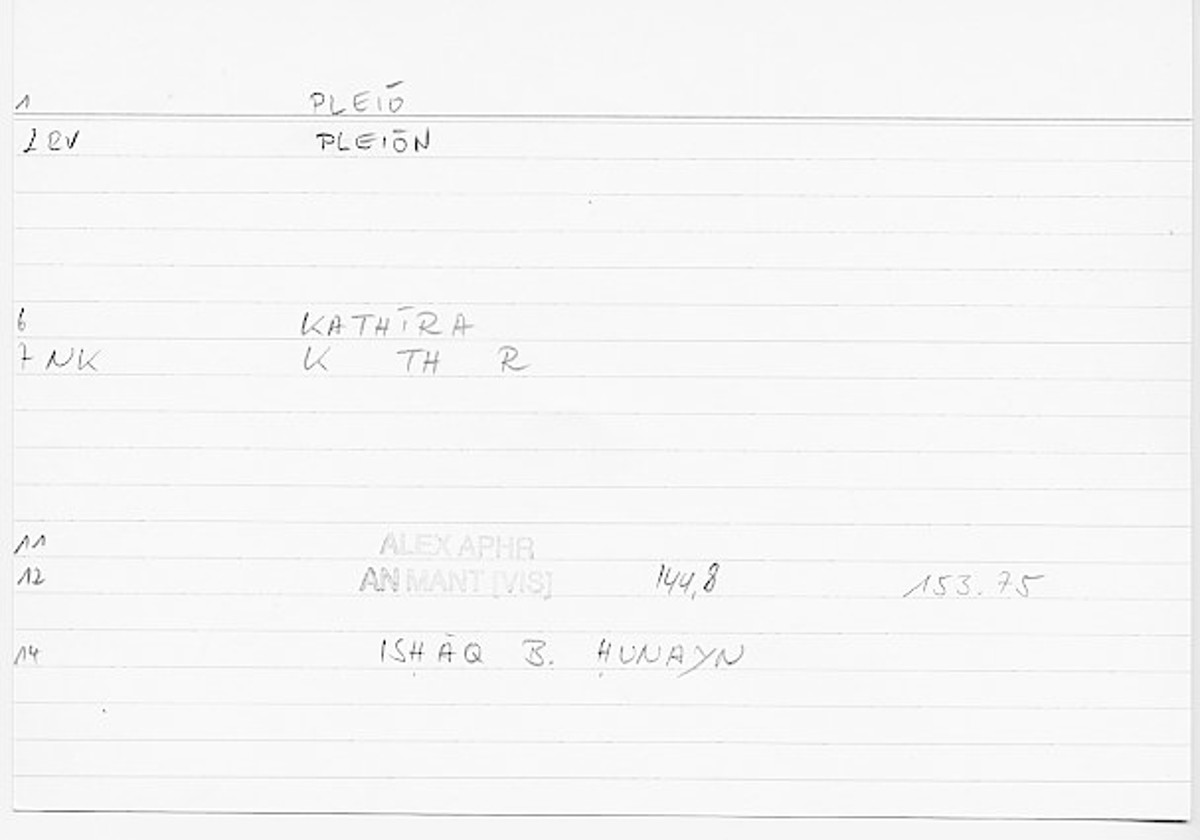 1 PLEIŌ
2 RV PLEIŌN
6 KATHĪRA
7 NK K TH R
11 ALEX APHR
12 AN MANT [VIS] 144,8 153.75
14 ISḤĀQ B. ḤUNAYN